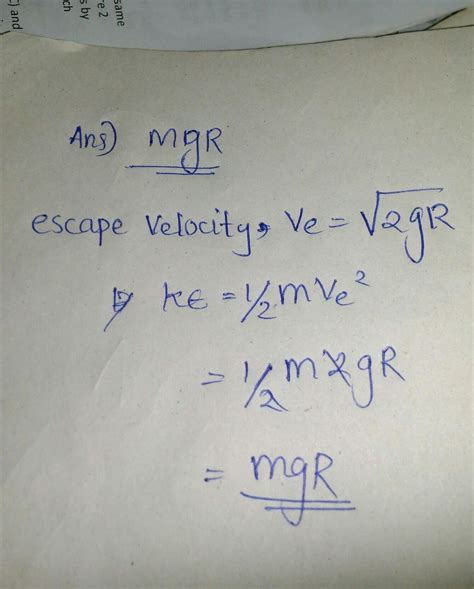 same
re 2
s by
ch
C) and
Ans) mgR
escape velocity, Ve = √2gR
⇒ KE = 1/2 mVe²
= 1/2 m2gR
= mgR